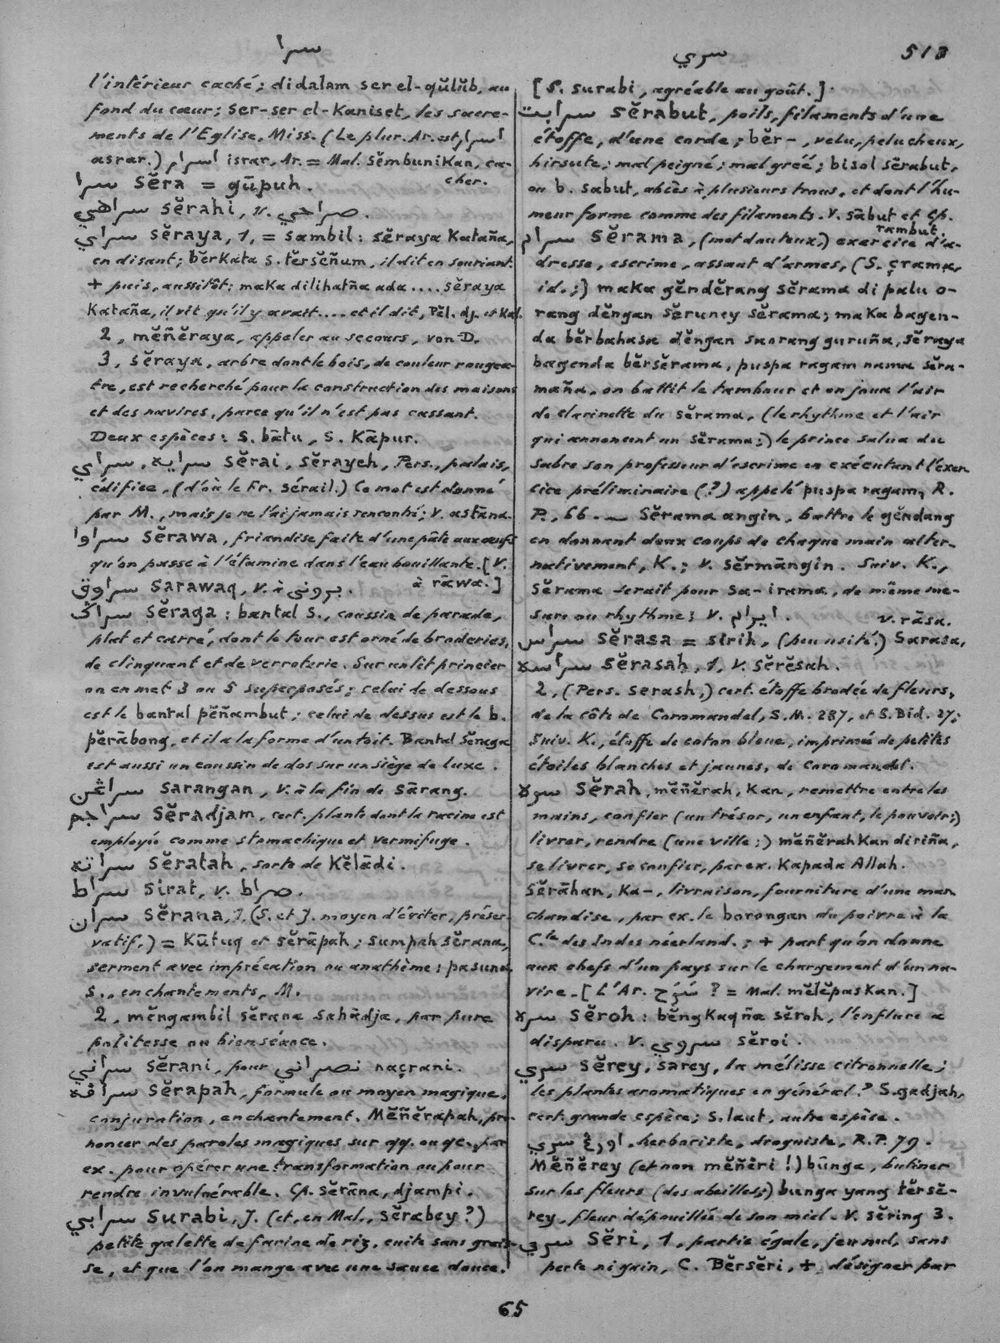 سرا
سري
513
l'intérieur caché; didalam ser el-qŭlūb, au
fond du cœur; ser-ser el-Kaniset, les sacre-
ments de l'Eglise, Miss. (Le plur. Ar. est, اسرار
asrar.) اسرار israr, Ar. = Mal. Sĕmbunikan, ca-
cher.
سرا Sĕra = gūpuh.
سراهي Sĕrahi, v. صراحي.
سراي Sĕraya, 1, = sambil: sĕraya Kataña,
en disant; bĕrkata s. tĕrsĕñum, il dit en souriant.
+ puis, aussitôt: maka dilihatña ada .... sĕraya
Kataña, il vit qu'il y avait .... et il dit, Pĕl. dj. et Kal.
2, mĕñĕraya, appeler au secours, von D.
3, sĕraya, arbre dont le bois, de couleur rougeâ-
tre, est recherché pour la construction des maisons
et des navires, parce qu'il n'est pas cassant.
Deux espèces: S. bātu, S. Kāpur.
سرايه, سراي Sĕrai, Sĕrayeh, Pers., palais,
édifice, (d'où le Fr. Sérail.) Ce mot est donné
par M., mais je ne l'ai jamais rencontré; V. astāna.
سراوا Sĕrawa, friandise faite d'une pâte aux œufs
qu'on passe à l'étamine dans l'eau bouillante. [V.
à rāwa.]
سراوق Sarawaq, v. à بروني.
سراگ Sĕraga: bantal S., coussin de parade,
plat et carré, dont le tour est orné de broderies,
de clinquant et de verroterie. Sur un lit princier
on en met 3 ou 5 superposés; celui de dessous
est le bantal pĕñambut; celui de dessus est le b.
pĕrābong, et il a la forme d'un toit. Bantal Sĕraga
est aussi un coussin de dos sur un siège de luxe.
سراڠن Sarangan, V. à la fin de Sārang.
سراجم Sĕradjam, cert. plante dont la racine est
employée comme stomachique et vermifuge.
سراته Sĕratah, sorte de Kĕlādi.
سراط Sirat, v. صراط.
سران Sĕrana, 1, (S. et J. moyen d'éviter, préser-
vatif,) = Kūtuq et sĕrāpah; sumpah sĕrana,
serment avec imprécation ou anathème; pasuna
S., enchantements, M.
2, mĕngambil sĕrana Sahādja, par pure
politesse ou bienséance.
سراني Sĕrani, pour نصراني naçrani.
سراڤه Sĕrapah, formule ou moyen magique,
conjuration, enchantement. Mĕñĕrapah, pro-
noncer des paroles magiques sur qq. ou qc., par
ex. pour opérer une transformation ou pour
rendre invulnérable. Cp. Sĕrāna, djampi.
سرابي Surabi, J. (et, en Mal., sĕrabey?)
petite galette de farine de riz, cuite sans grais-
se, et que l'on mange avec une sauce douce.
[S. surabi, agréable au goût.]
سرابت Sĕrabut, poils, filaments d'une
étoffe, d'une corde; bĕr-, velu, pelucheux,
hirsute; mal peigné; mal gréé; bisol sĕrabut,
ou b. sabut, abcès à plusieurs trous, et dont l'hu-
meur forme comme des filaments. V. sābut et Cp.
rambut.
سرام Sĕrama, (mot douteux,) exercice d'a-
dresse, escrime, assaut d'armes, (S. çrama,
id.;) maka gĕndĕrang sĕrama di palu o-
rang dĕngan sĕruney sĕrama; maka bagen-
da bĕrbahasa dĕngan saorang guruña, sĕraya
bagenda bĕrsĕrama, puspa ragam nama sĕra-
maña, on battit le tambour et on joua l'air
de clarinette du sĕrama, (le rhythme et l'air
qui annoncent un sĕrama;) le prince salua du
sabre son professeur d'escrime en exécutant l'exer-
cice préliminaire (?) appelé puspa ragam, R.
P., 66. — Sĕrama angin, battre le gĕndang
en donnant deux coups de chaque main alter-
nativement, K.; V. Sĕrmāngin. Suiv. K.,
Sĕrama serait pour Sa-irama, de même me-
sure ou rhythme; V. ايرام.
V. rāsa.
سراس Sĕrasa = sirih, (peu usité.) Sarasa,
سراسه Sĕrasah, 1, V. Sĕrĕsah.
2, (Pers. serash,) cert. étoffe brodée de fleurs,
de la côte de Coromandel, S.M. 287, et S. Bid. 27;
Suiv. K., étoffe de coton bleue, imprimée de petites
étoiles blanches et jaunes, de Coromandel.
سره Sĕrah, mĕñĕrah, Kan, remettre entre les
mains, confier (un trésor, un enfant, le pouvoir;)
livrer, rendre (une ville;) mĕñĕrahkan diriña,
se livrer, se confier, par ex. Kapada Allah.
Sĕrāhan, Ka-, livraison, fourniture d'une mar
chandise, par ex. le borongan du poivre à la
C.ie des Indes néerland.; + part qu'on donne
aux chefs d'un pays sur le chargement d'un na-
vire. [L'Ar. سَرَّحَ ? = Mal. mĕlĕpaskan.]
سره Sĕroh: bĕngkaqña sĕroh, l'enflure a
disparu. V. سروي sĕroi.
سري Sĕrey, sarey, la mélisse citronnelle;
les plantes aromatiques en général? S. gadjah,
cert. grande espèce; S. laut, autre espèce.
اورڠ سري, herboriste, droguiste, R.P. 79.
Mĕñĕrey (et non mĕñĕri!) būnga, butiner
sur les fleurs (des abeilles;) bunga yang tĕrsĕ-
rey, fleur dépouillée de son miel. V. Sĕring 3.
سري Sĕri, 1, partie égale, jeu nul, sans
perte ni gain, C. Bĕrsĕri, +, désigner par
65